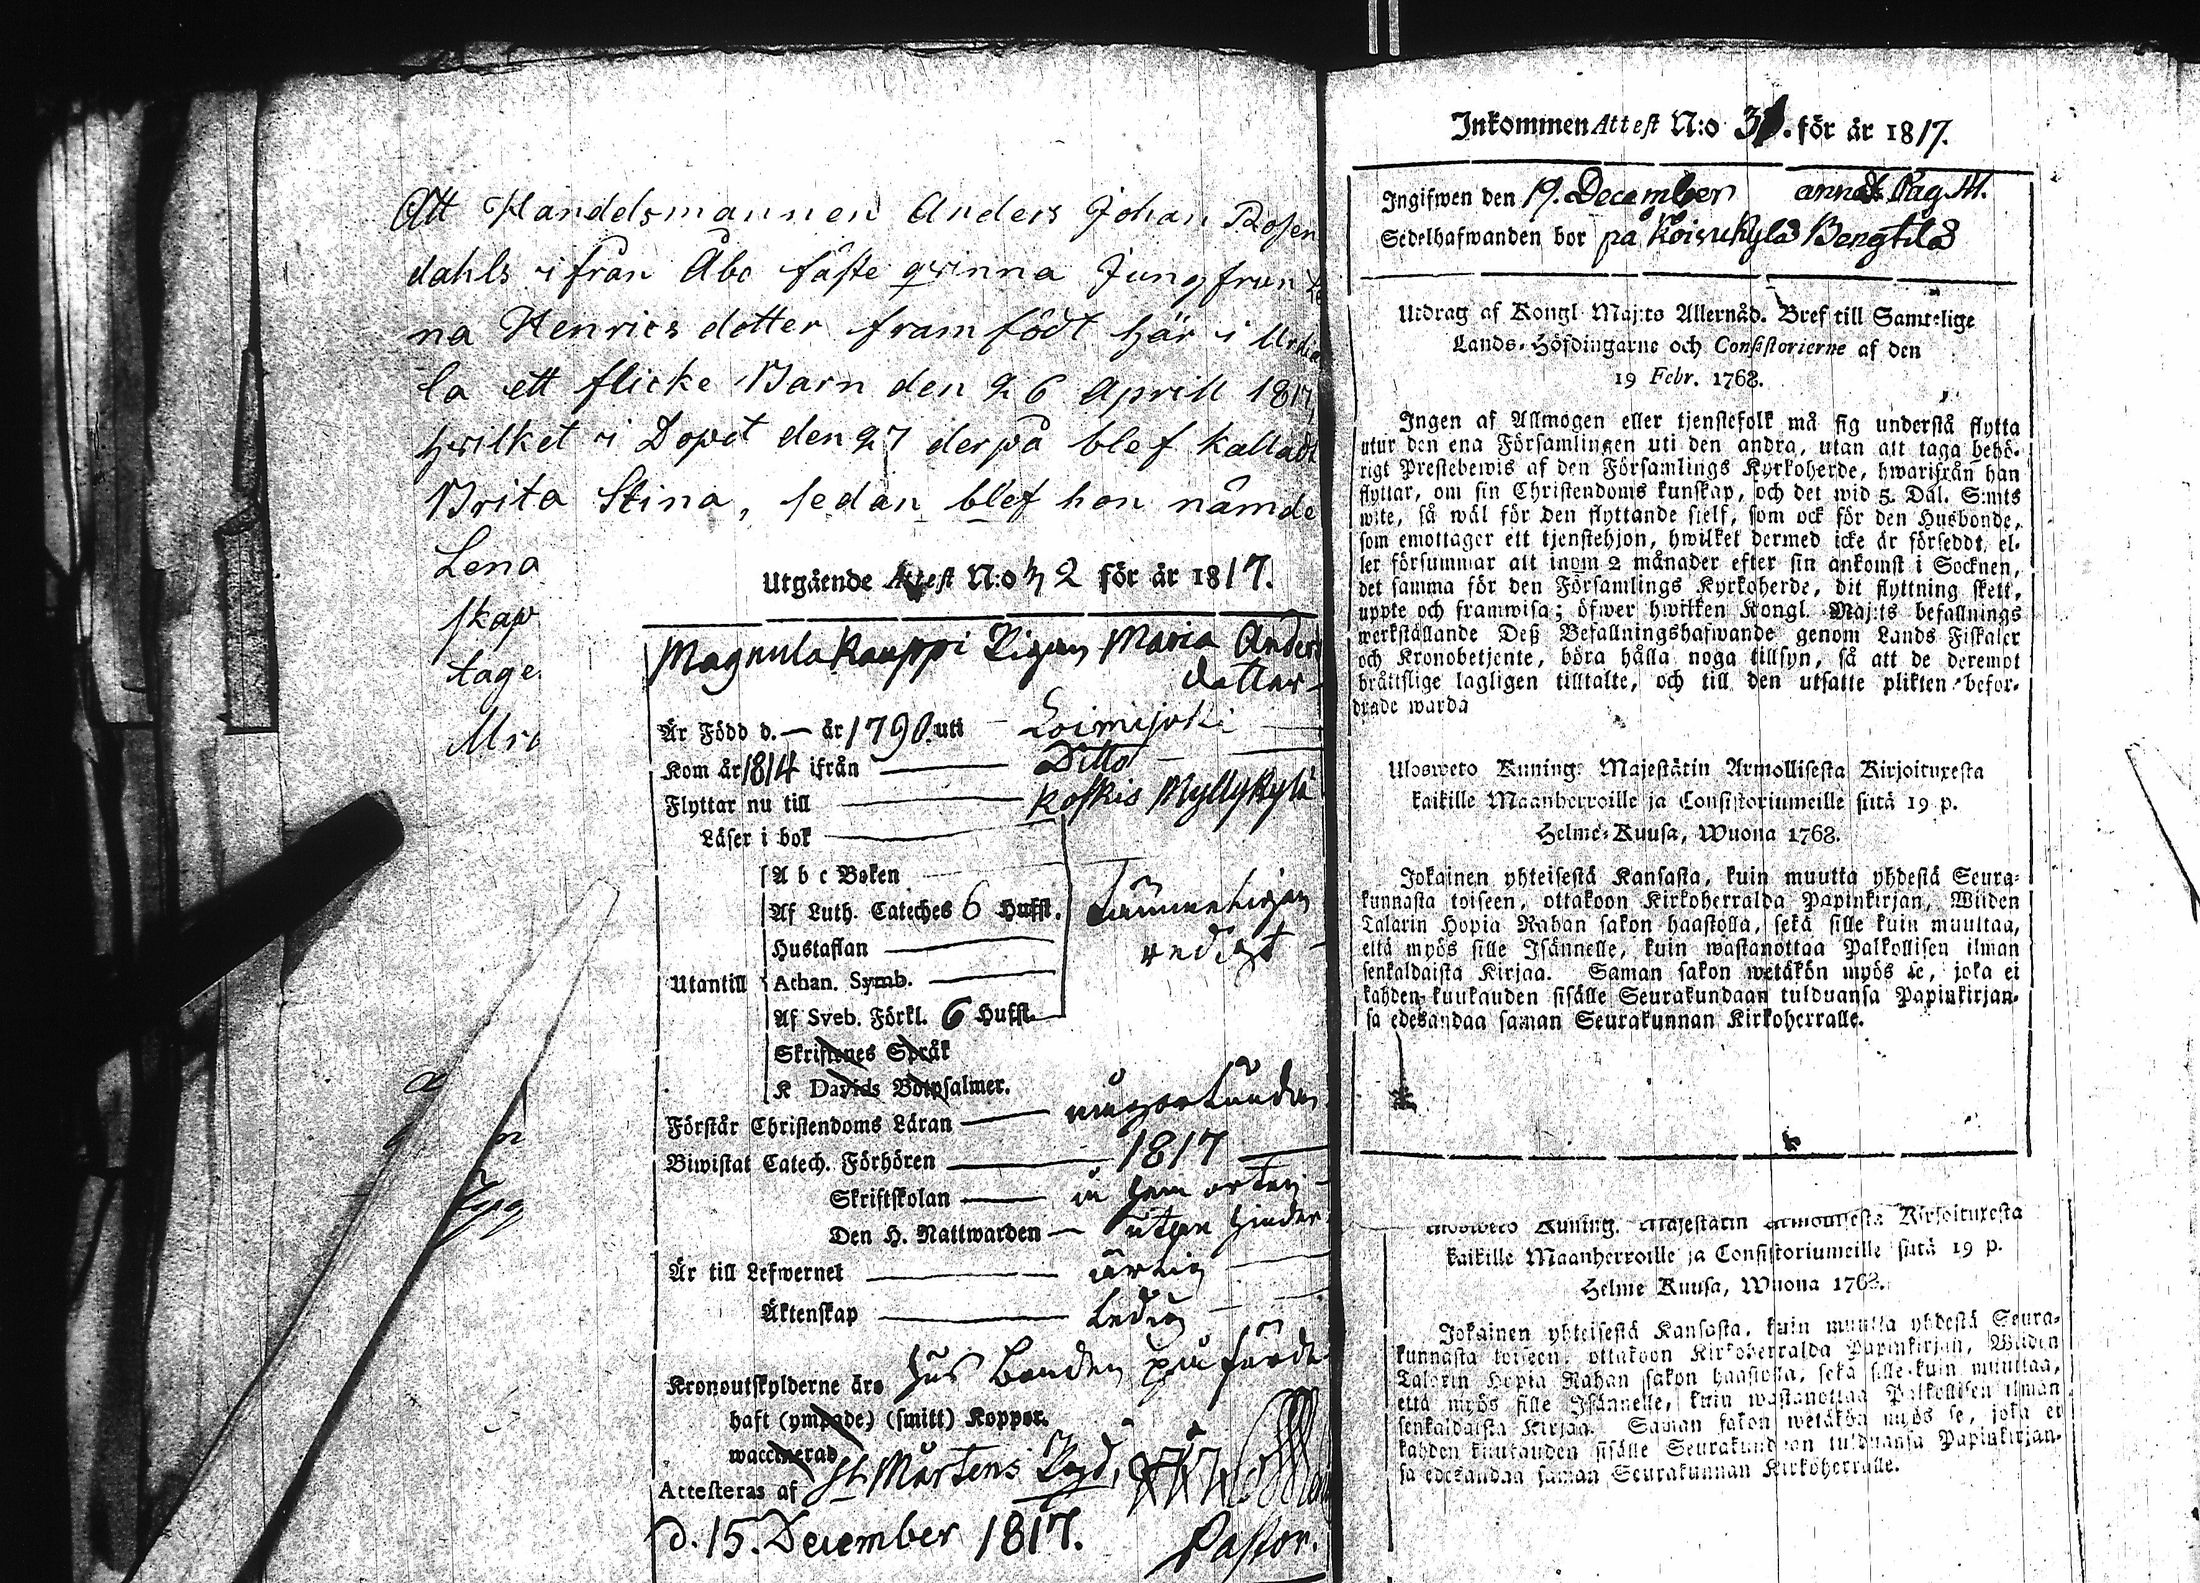 Att Handelsmannen Anders Johan Rosen
dahls ifrån Åbo fäste qvinna Jungfrun
na Henrics dotter framfödt här i Urdia
la ett flicke Barn den 26 Aprill 1817,
hvilket i Dopet den 27 derpå blef kalladt
Brita Stina, sedan blef hon nämde
Lena
skap
tage
Utgående Attest N:o 42 för år 1817.
Magnula Kauppi Pigan Maria Anders
dotter
Är Född d. — år 1790. uti — Loimijoki
Kom år 1814 ifrån — Ditto
Flyttar nu till — Koskis Myllykylä
Läser i bok
A b c Boken
Af Luth. Cateches 6 Hufst.
Hustaflan
Utantill Athan. Symb.
Af Sveb. Förkl. 6 Hufst.
Skriftenes Språk
K Davids Botpsalmer.
Förstår Christendoms Läran —
Biwistat Catech. Förhören — 1817
Skriftskolan — i hem orten
Den H. Nattwarden — utan hinder
Är till Lefwernet — ärlig
Äktenskap — ledig
Kronoutskylderne äro Hus bonden påförde
haft (ympade) (smitt) Koppor.
waccinerad
Attesteras af St. Mårtens
d. 15. December 1817. Pastor.
Inkommen Attest N:o 31. för år 1817.
Ingifwen den 19. December annot. Pag.
Sedelhafwanden bor på Koivukylä Bengtilä
Utdrag af Kongl Maj:ts Allernåd. Bref till Samtelige
Lands-Höfdingarne och Consistorierne af den
19 Febr. 1768.
Ingen af Allmogen eller tjenstefolk må sig understå flytta
utur den ena Församlingen uti den andra, utan att taga behö-
rigt Prestebewis af den Församlings Kyrkoherde, hwarifrån han
flyttar, om sin Christendoms kunskap, och det wid 5. Dal. S:mts
wite, så wäl för den flyttande sjelf, som ock för den Husbonde,
som emottager ett tjenstehjon, hwilket dermed icke är försedt, el-
ler försummar att inom 2 månader efter sin ankomst i Socknen,
det samma för den Församlings Kyrkoherde, dit flyttning skett,
uppte och framwisa; öfwer hwilken Kongl. Maj:ts befallnings
werkställande Deß Befallningshafwande genom Lands Fiskaler
och Kronobetjente, böra hålla noga tillsyn, så att de deremot
bråttslige lagligen tilltalte, och till den utsatte plikten befor-
drade warda
Ulosweto Kuning. Majestätin Armollisesta Kirjoituxesta
kaikille Maanherroille ja Consistoriumeille siitä 19 p.
Helme-Kuusa, Wuona 1768.
Jokainen yhteisestä Kansasta, kuin muutta yhdestä Seura-
kunnasta toiseen, ottakoon Kirkoherralda Papinkirjan, Wiiden
Talarin Hopia Rahan sakon haastolla, sekä sille kuin muuttaa,
että myös sille Isännelle, kuin wastanottaa Palkollisen ilman
senkaldaista Kirjaa. Saman sakon wetäkön myös se, joka ei
kahden kuukauden sisälle Seurakundaan tulduansa Papinkirjan-
sa edesandaa saman Seurakunnan Kirkoherralle.
Ulosweto Kuning. Majestätin Armollisesta Kirjoituxesta
kaikille Maanherroille ja Consistoriumeille siitä 19 p.
Helme Kuusa, Wuona 1768.
Jokainen yhteisestä Kansasta, kuin muutta yhdestä Seura-
kunnasta toiseen, ottakoon Kirkoherralda Papinkirjan, Wiiden
Talarin Hopia Rahan sakon haastolla, sekä sille kuin muuttaa,
että myös sille Isännelle, kuin wastanottaa Palkollisen ilman
senkaldaista Kirjaa. Saman sakon wetäkön myös se, joka ei
kahden kuukauden sisälle Seurakundaan tulduansa Papinkirjan-
sa edesandaa saman Seurakunnan Kirkoherralle.